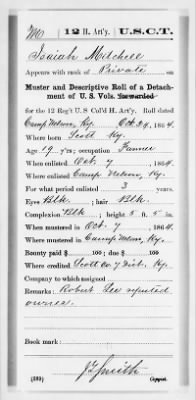 M | 12 H. Art'y. | U.S.C.T.
Isaiah Mitchell
Appears with rank of Private on
Muster and Descriptive Roll of a Detach-
ment of U. S. Vols. Forwarded
for the 12 Reg't U S Col'd H. Art'y. Roll dated
Camp Nelson, Ky. Oct 24, 1864.
Where born Scott Ky.
Age 19 y'rs; occupation Farmer
When enlisted Oct 7, 1864.
Where enlisted Camp Nelson, Ky.
For what period enlisted 3 years.
Eyes Blk; hair Blk.
Complexion Blk; height 5 ft. 5 in.
When mustered in Oct 7, 1864.
Where mustered in Camp Nelson, Ky.
Bounty paid $ 100; due $ 100
Where credited Scott Co 7 Dist. Ky.
Company to which assigned
Remarks: Robert Lee reputed
owner.
Book mark:
J Smith
(339) Copyist.